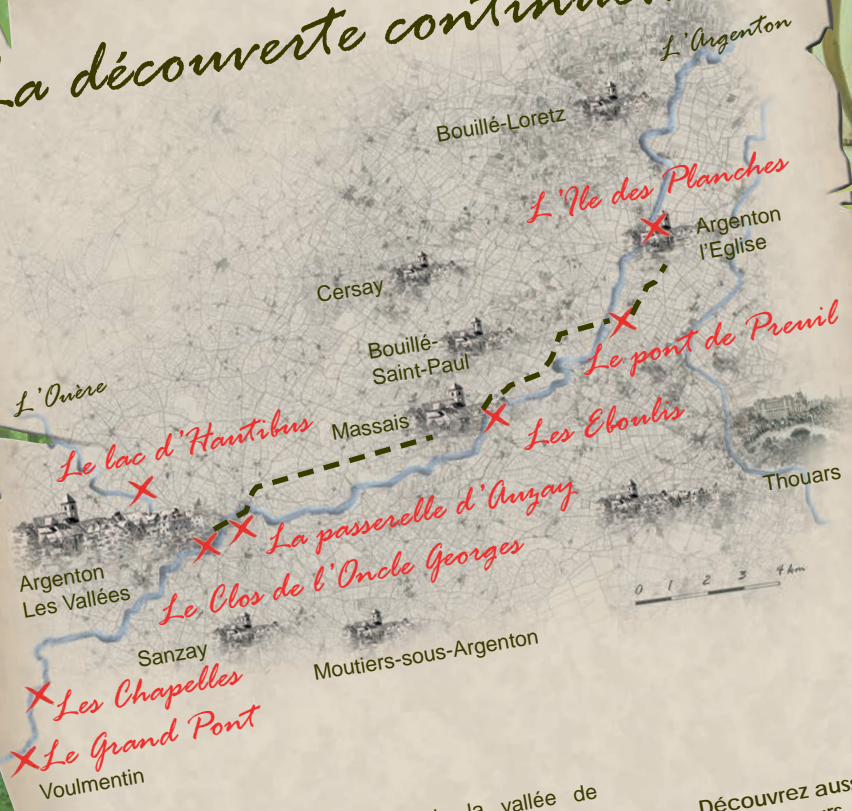 La découverte
L'Argenton
Bouillé-Loretz
L'Ile des Planches
Argenton
l'Eglise
Cersay
Bouillé-
Saint-Paul
Le pont de Preuil
L'Ouère
Massais
Les Eboulis
Le lac d'Hautibus
Thouars
La passerelle d'Auzay
Argenton
Les Vallées
Le Clos de l'Oncle Georges
0 1 2 3 4 km
Sanzay
Moutiers-sous-Argenton
Les Chapelles
Le Grand Pont
Voulmentin
la vallée de
Découvrez